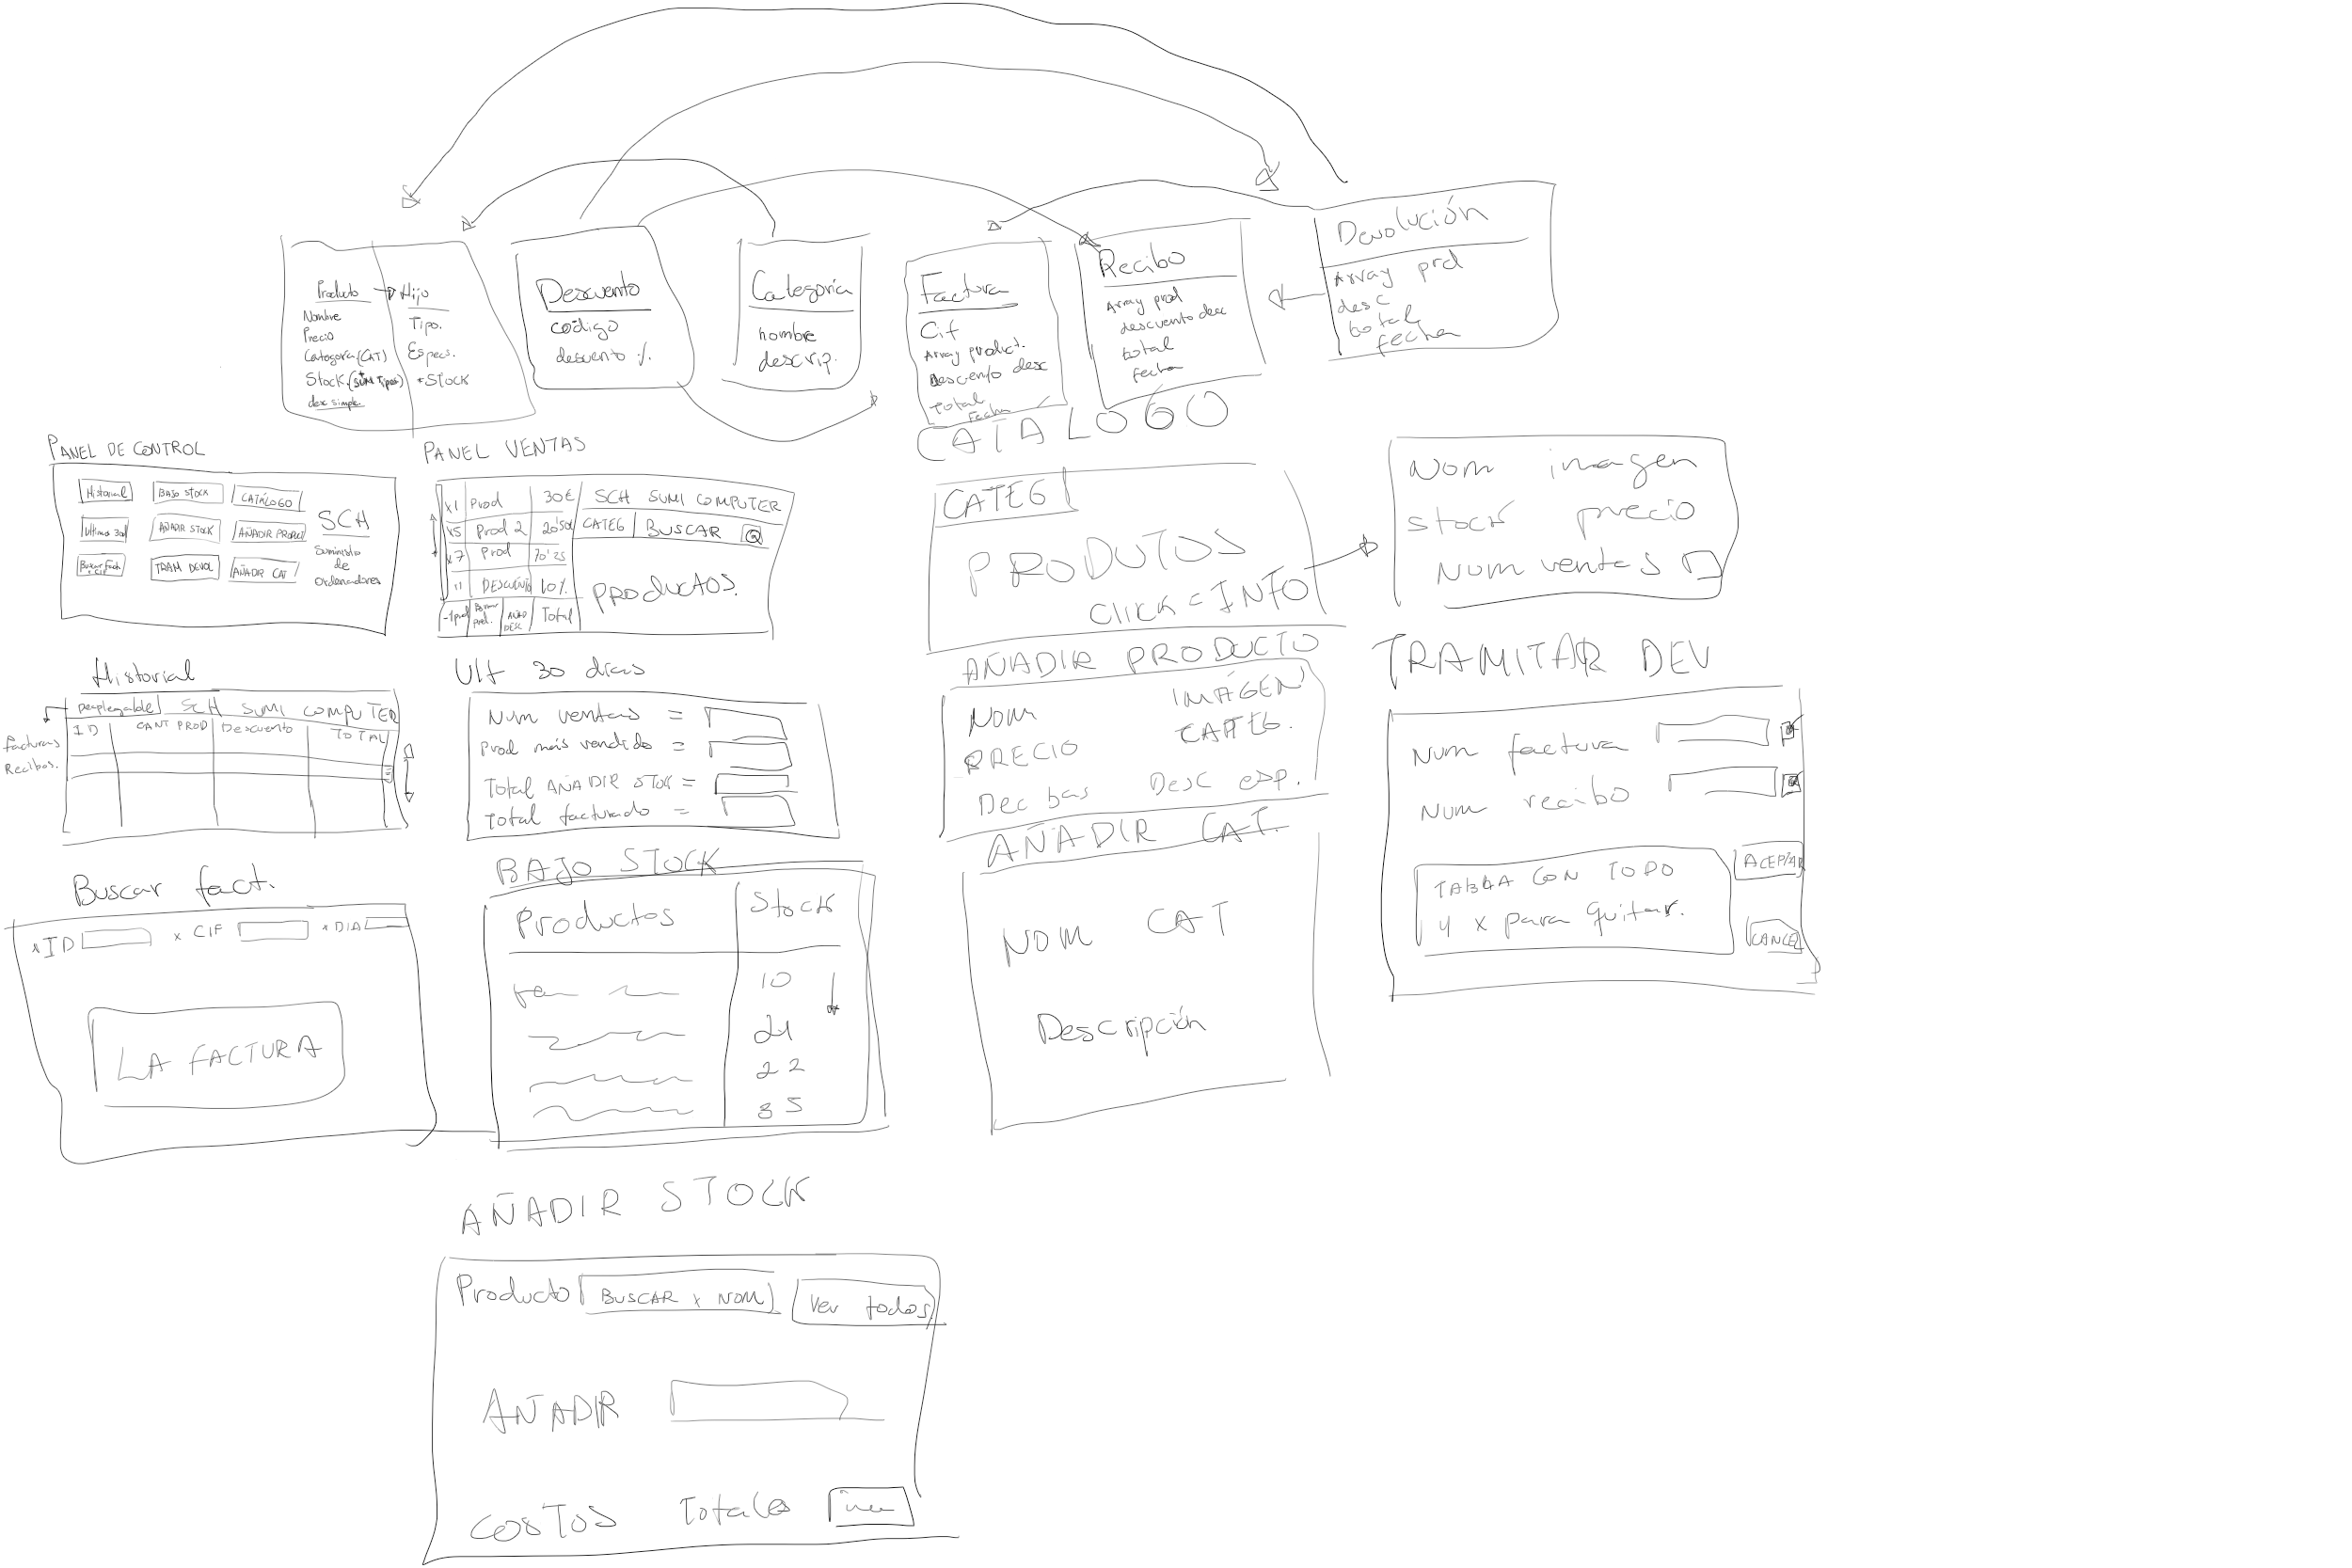 Producto
Nombre
Precio
Categoria (CAT)
Stock (SUM Tipos)
desc simple
Hijo
Tipo.
Especs.
* STOCK
Descuento
código
descuento %.
Categoría
nombre
descrip.
Factura
Cif
Array product.
Descuento desc
Total
Fecha
Recibo
Array prod
descuento desc
total
fecha
Devolución
Array prd
desc
total
fecha
PANEL DE CONTROL
Historial
BAJO STOCK
CATÁLOGO
Ultimos 30d
AÑADIR STOCK
AÑADIR PRODUCT
Buscar fach
x CIF
TRAM DEVOL
AÑADIR CAT
SCH
Suministo
de
ordenadores
PANEL VENTAS
x1 Prod 30€
x5 Prod 2 20'50€
x7 Prod 70'25
11 DESCUENTO 10%
-1 prod
Borrar
prod.
AÑAD
DESC
Total
SCH SUMI COMPUTER
CATEG BUSCAR
PRODUCTOS.
CATALOGO
CATEG
PRODUTOS
CLICK = INFO
Nom imagen
stock precio
Num ventas
Historial
Desplegable SCH SUMI COMPUTER
ID CANT PROD Descuento TOTAL
Facturas
Recibos.
Ult 30 dias
Num ventas =
Prod más vendido =
Total AÑADIR STOCK =
Total facturado =
AÑADIR PRODUCTO
NOM IMÁGEN
PRECIO CATEG.
Dec bas Desc esp.
TRAMITAR DEV
Num factura
Num recibo
TABLA CON TODO
Y x para quitar.
ACEPTAR
CANCEL
Buscar fact.
x ID x CIF x DIA
LA FACTURA
BAJO STOCK
Productos Stock
10
21
22
35
AÑADIR CAT.
NOM CAT
Descripción
AÑADIR STOCK
Producto BUSCAR x NOM Ver todos
AÑADIR
COSTOS Totales